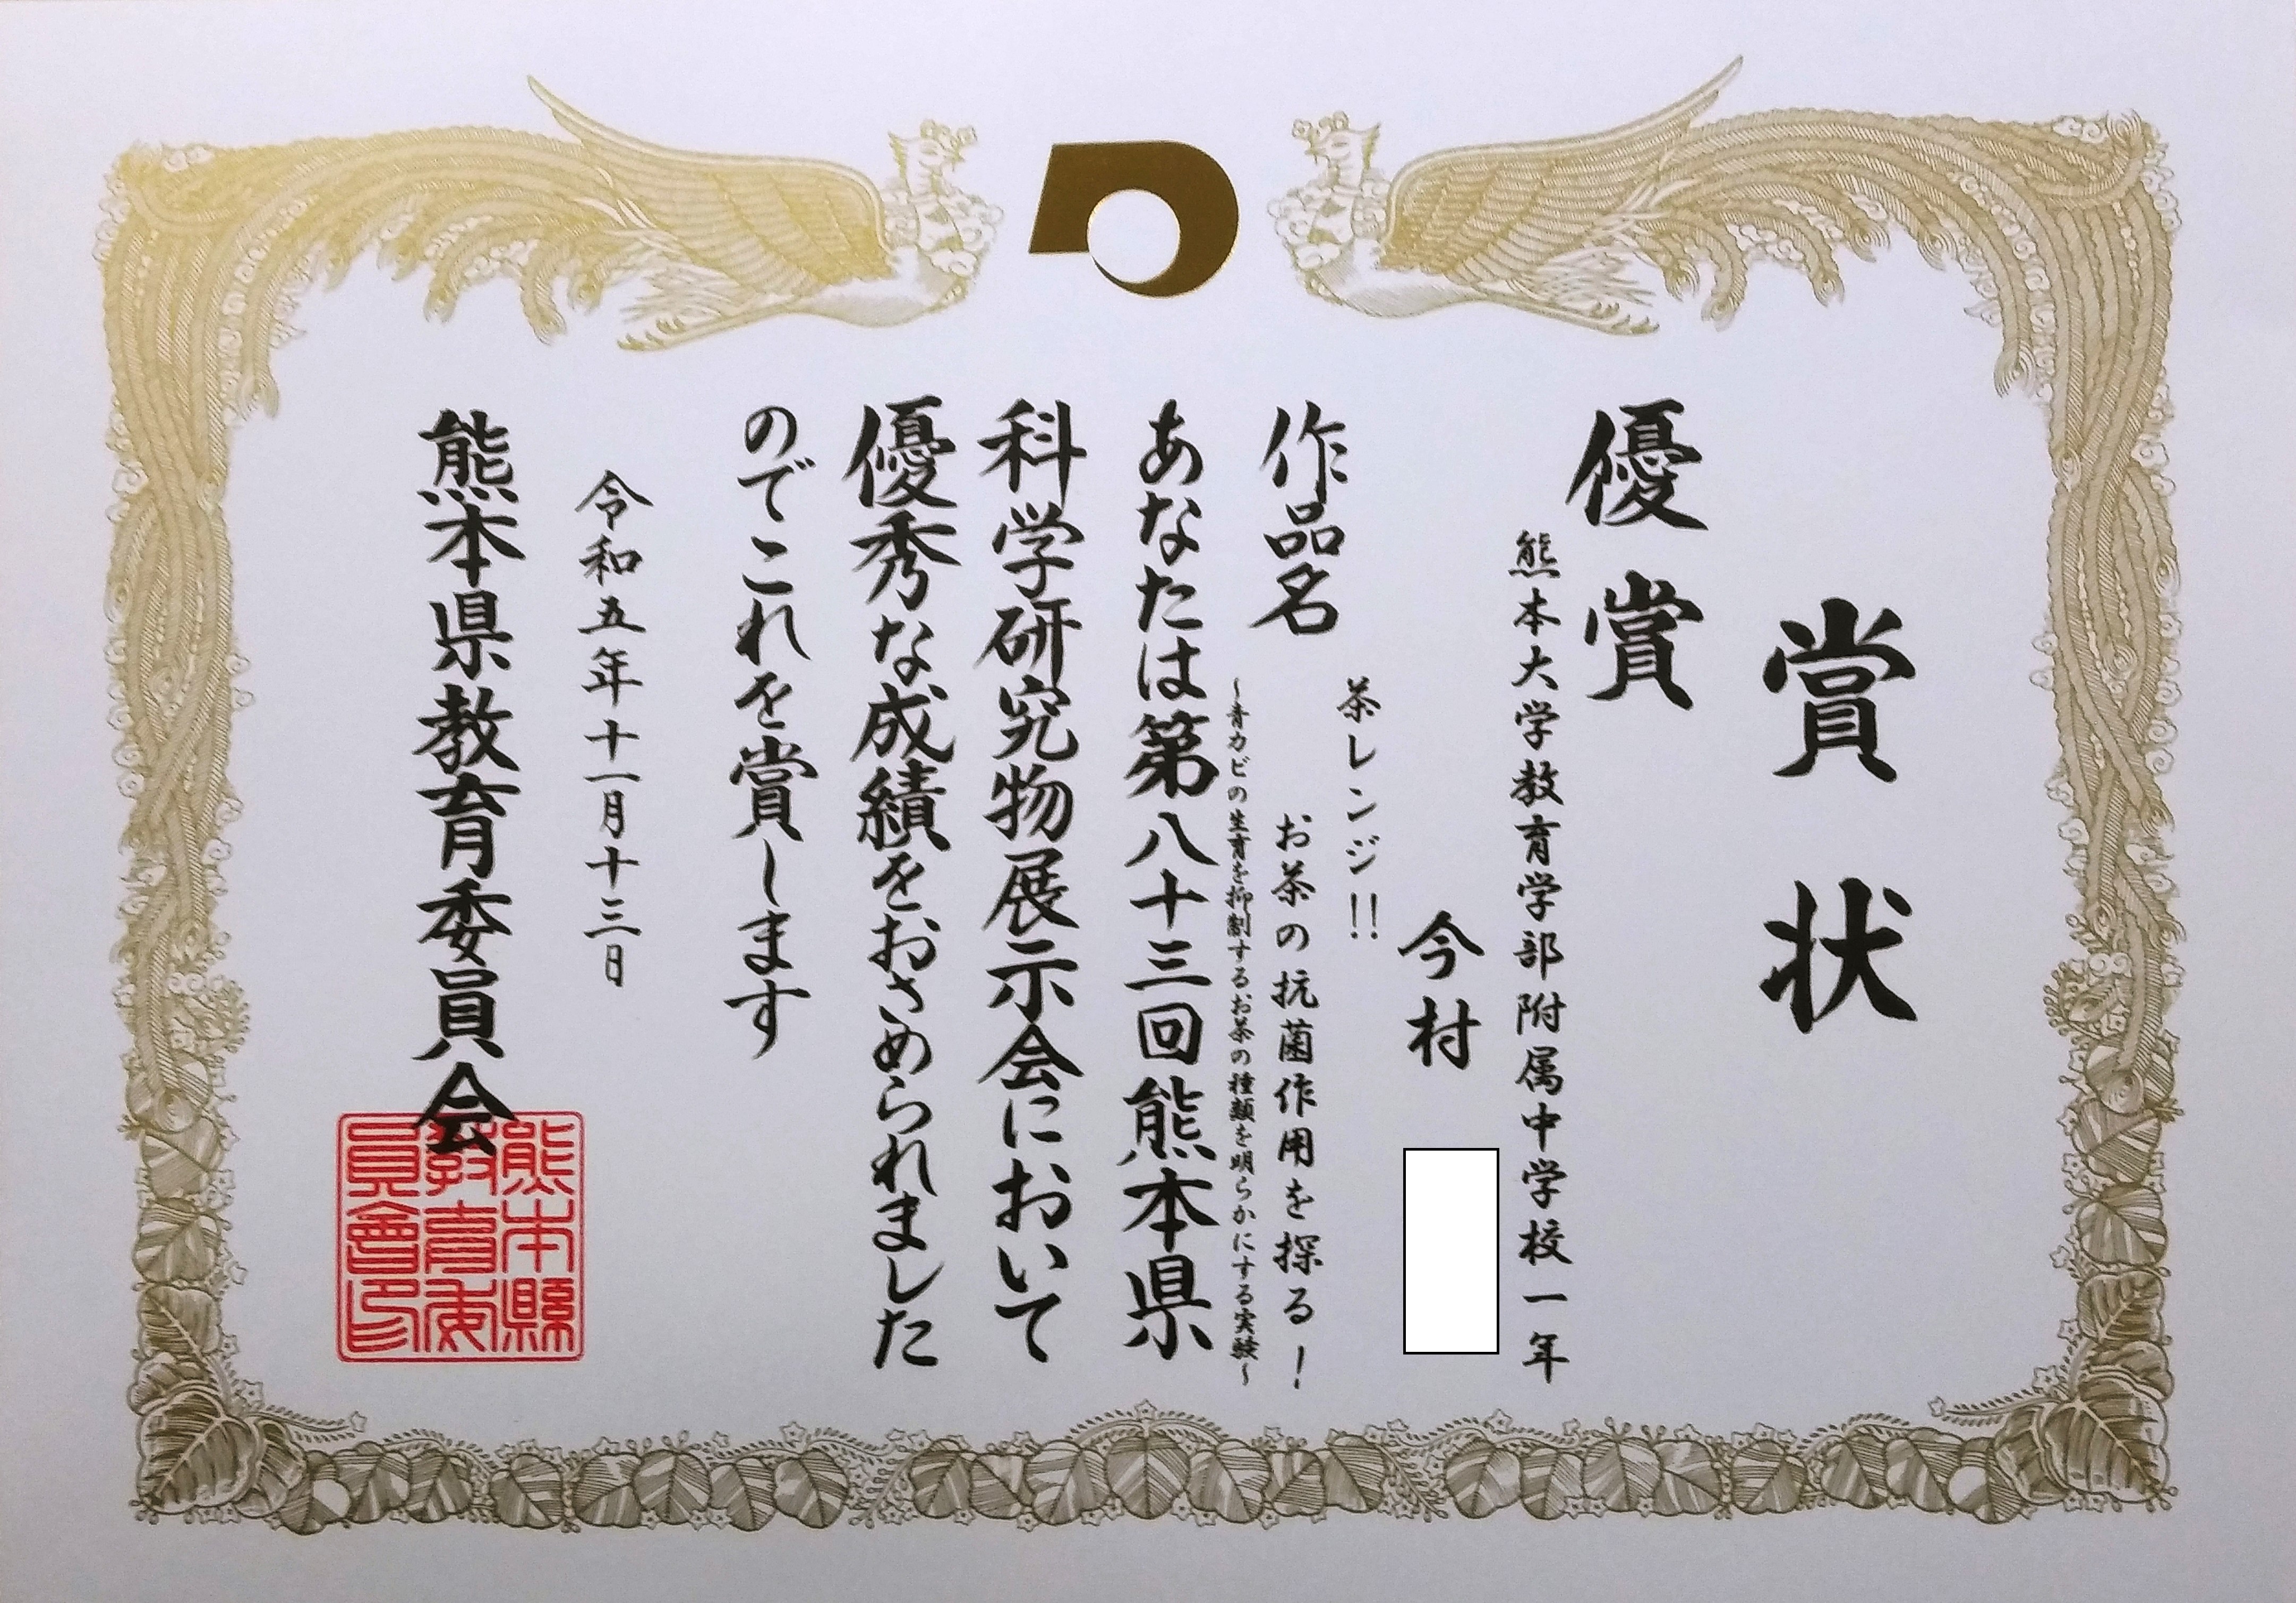 賞状
優賞
熊本大学教育学部附属中学校一年
今村
作品名
茶レンジ!!
お茶の抗菌作用を探る!
~青カビの生育を抑制するお茶の種類を明らかにする実験~
あなたは第八十三回熊本県
科学研究物展示会において
優秀な成績をおさめられました
のでこれを賞します
令和五年十一月十三日
熊本県教育委員会
熊本縣
教育委
員會印